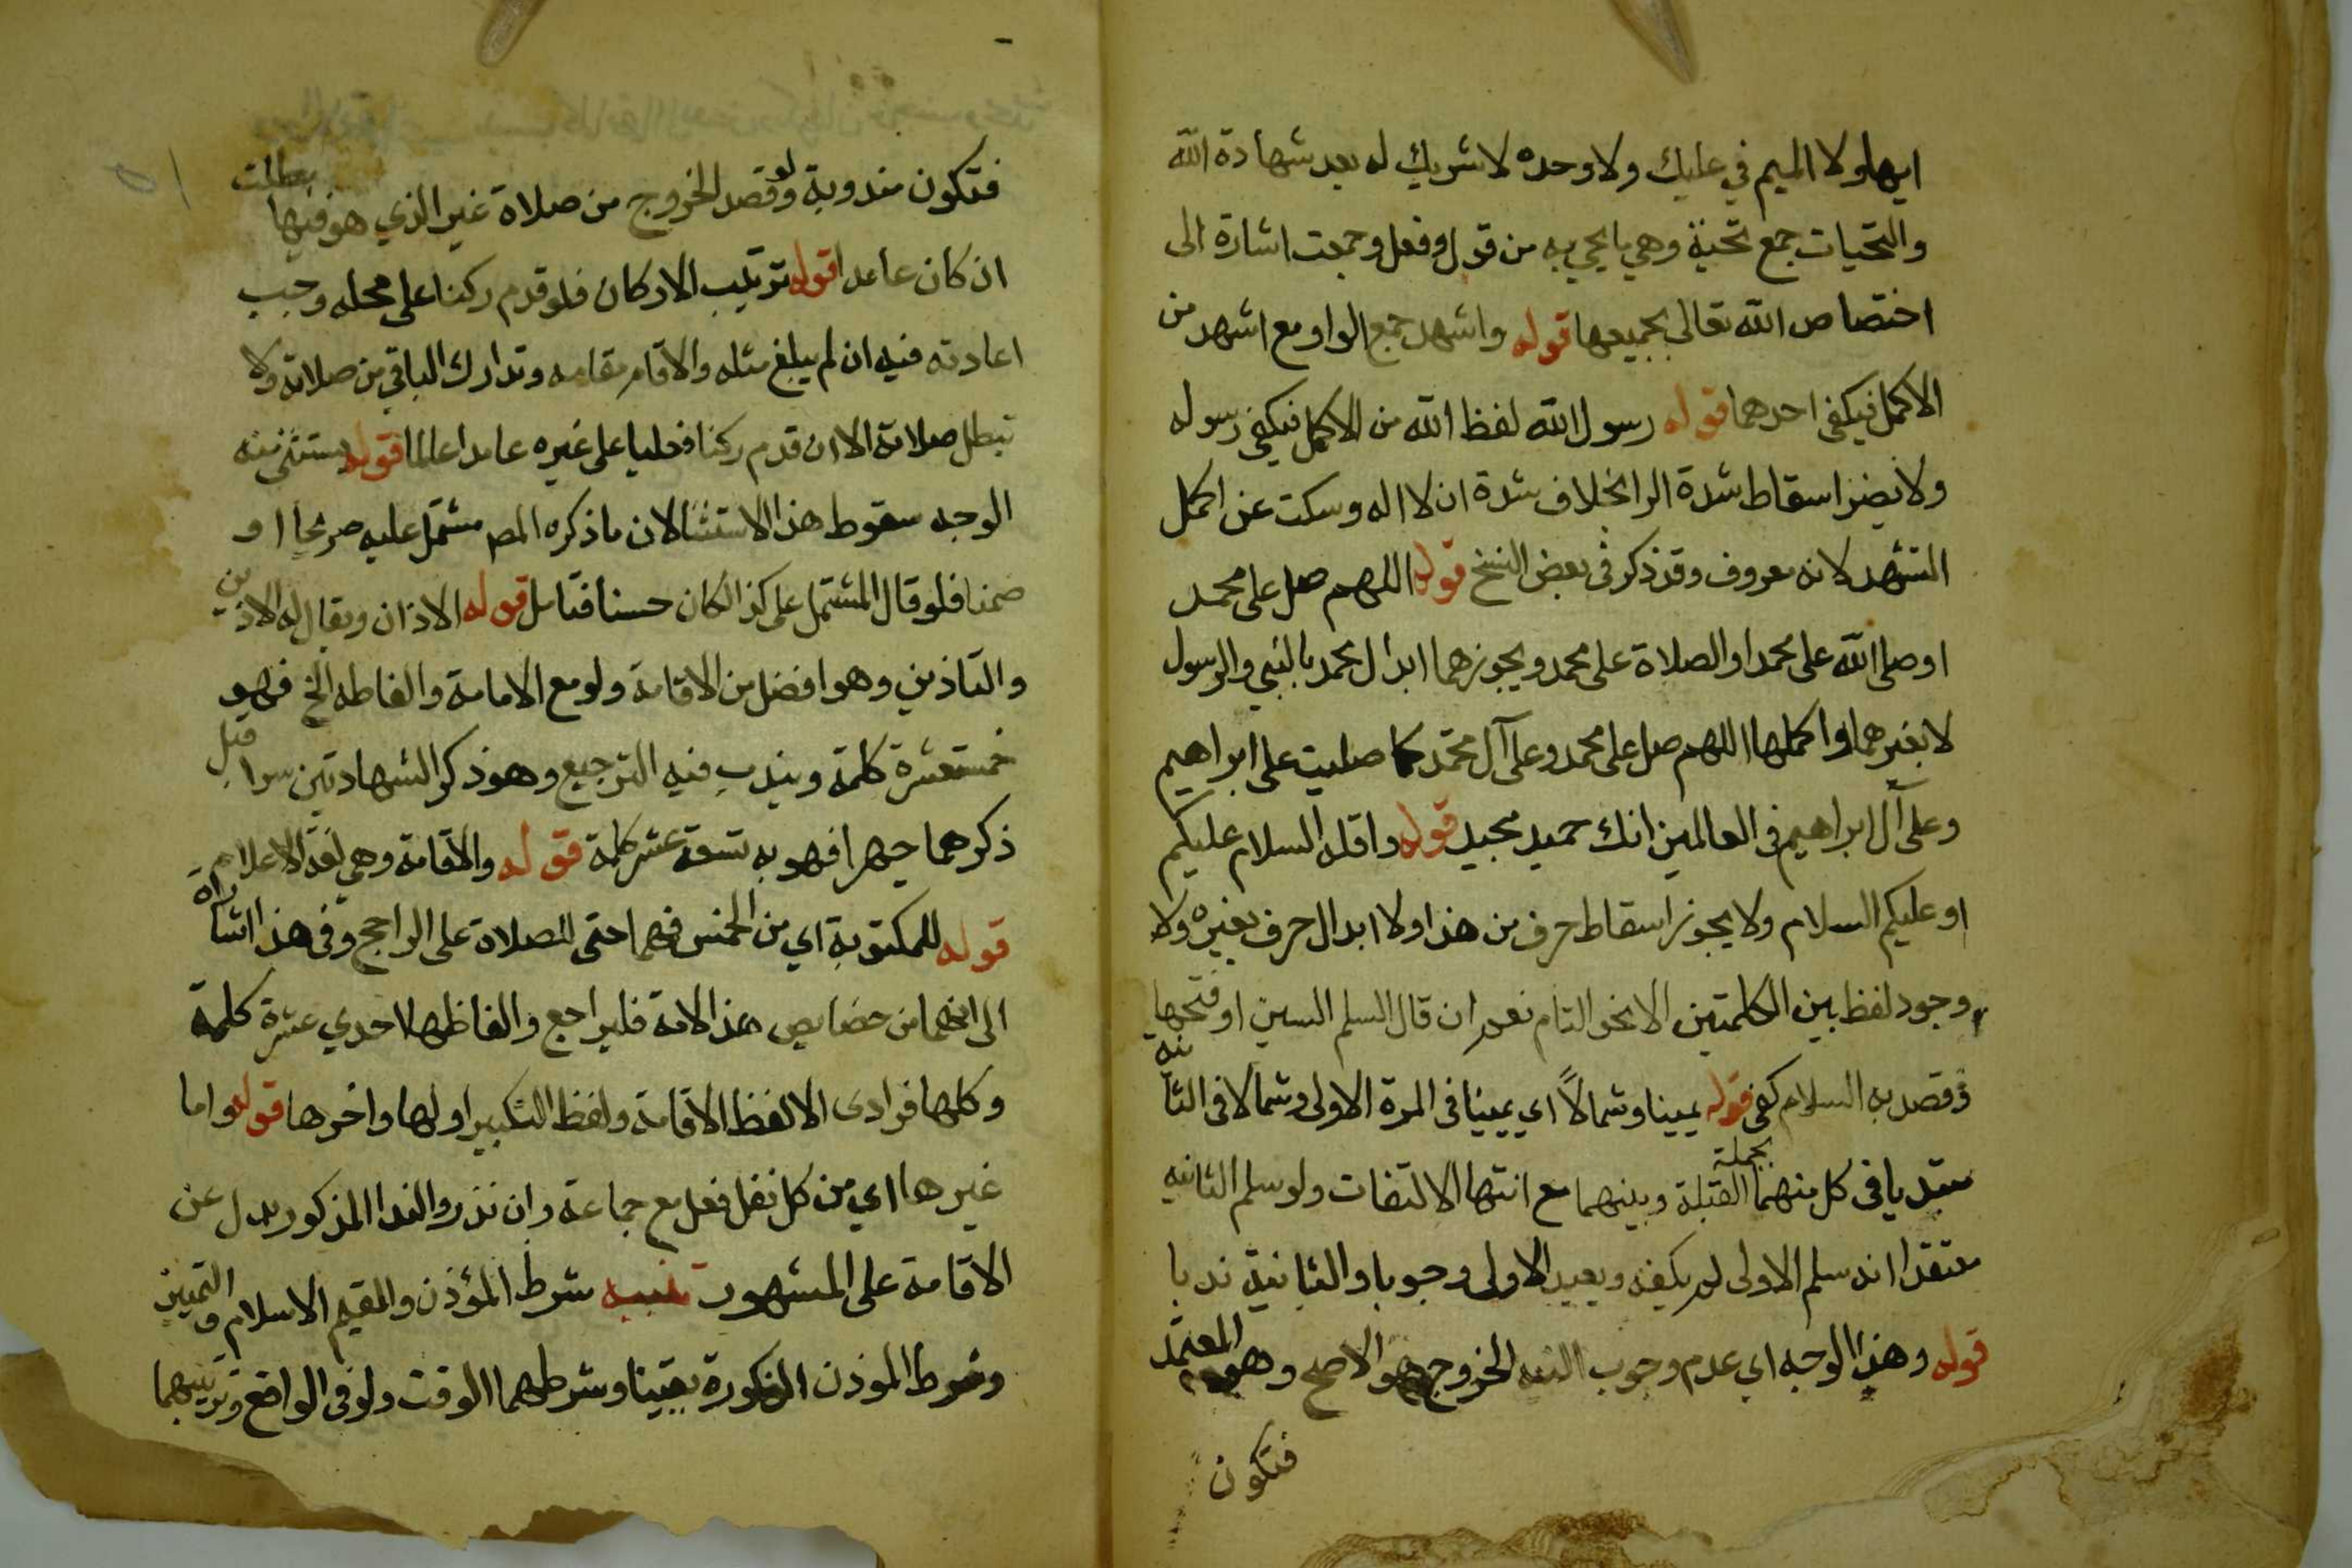 ايها ولا الميم في عليك ولا وحده لا شريك له بعد شهادة الله
والتحيات جمع تحية وهي ما يحي به من قول وفعل وجمعت اشارة الى
اختصاص الله تعالى بجميعها قوله واشهد جمع الواو مع اشهد من
الاكمل فيكفي احدهما قوله رسول الله لفظ الله من الاكمل فيكفي رسوله
ولا يضر اسقاط شدة الرا بخلاف شدة ان لا اله وسكت عن اكمل
التشهد لانه معروف وقد ذكر في بعض النسخ قوله اللهم صل على محمد
او صلى الله على محمد او الصلاة على محمد ويجوز هما ابدال محمد بالنبي والرسول
لا بغيرهما واكملها اللهم صل على محمد وعلى آل محمد كما صليت على ابراهيم
وعلى آل ابراهيم في العالمين انك حميد مجيد قوله واقله السلام عليكم
او عليكم السلام ولا يجوز اسقاط حرف من هذا ولا ابدال حرف بغيره ولا
وجود لفظ بين الكلمتين الا نحو التام نعم ان قال السلم السين او فتحها
وقصد به السلام كفى قوله يمينا وشمالاً اي يمينا في المرة الاولى وشمالا في الثانيه
مبتديا في كل منهما بجملة القبلة وينهيهما مع انتها الالتفات ولو سلم الثانيه
معتقدا انه سلم الاولى لم يكفه ويعيد الاولى وجوبا والثانية ندبا
قوله وهذا الوجه اي عدم وجوب النيه الخروج هو الاصح وهو المعتمد
فتكون
فتكون مندوبة ولو قصد الخروج من صلاة غير الذي هو فيها بطلت
ان كان عامدا قوله ترتيب الاركان فلو قدم ركنا على محله وجب
اعادته فيه ان لم يبلغ مثله والا قام مقامه وتدارك الباقي من صلاته ولا
تبطل صلاته الا ان قدم ركنا فعليا على غيره عامدا عالما قوله يستثنى منه
الوجه سقوط هذا الاستثنا لان ما ذكره المص مشتمل عليه صريحا او
ضمنا فلو قال المشتمل على كذا لكان حسنا فتامل قوله الاذان ويقال له الاذين
والتاذين وهو افضل من الاقامة ولو مع الامامة والفاظه الخ فهو
خمسة عشرة كلمة ويندب فيه الترجيع وهو ذكر الشهادتين سرا قبل
ذكرهما جهرا فهو به تسعة عشر كلمة قوله والاقامة وهي لغة الاعلام
قوله للمكتوبة اي من الخمس فهما حق للصلاة على الراجح وفي هذا اشارة
الى انهما من خصايص هذا الامة فليراجع والفاظها احدي عشرة كلمة
وكلها فرادى الا لفظ الاقامة ولفظ التكبير اولها واخرها قوله واما
غيرها اي من كل نفل فعل مع جماعة وان نذر والندا المذكور بدل عن
الاقامة على المشهور تنبيه شرط المؤذن والمقيم الاسلام والتمييز
وشرط الموذن الذكورة يقينا وشرطهما الوقت ولو في الواقع وترتيبهما